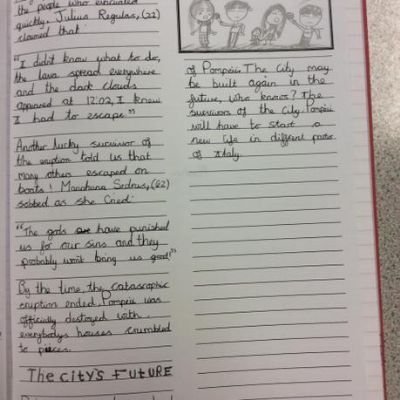 the people who evacuated
quickly. Julius Regulas, (22)
claimed that:
"I didn't know what to do,
the lava spread everywhere
and the dark clouds
appeared at 12:02, I knew
I had to escape."
Another lucky survivor of
the eruption told us that
many others escaped on
boats! Manchuna Sedrus, (62)
sobbed as she cried:
"The gods have punished
us for our sins and they
probably won't bring us good!"
By the time, the catasraphic
eruption ended, Pompeii was
officially destroyed with
everybodys houses crumbled
to pieces.
The City's FUtURE
of Pompeii. The city may
be built again in the
future, who knows? The
survivors of the city Pompeii
will have to start a
new life in different parts
of Italy.